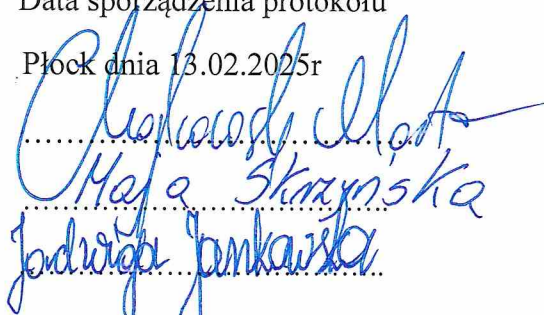 Data sporządzenia protokołu
Płock dnia 13.02.2025r
Marta
Maja Skrzyńska
Jadwiga Jankowska